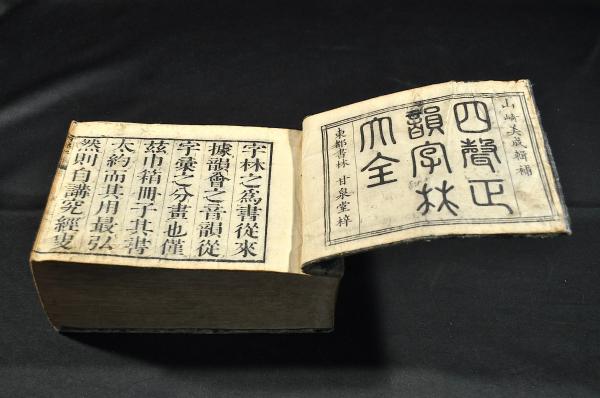 山崎美成輯補
四聲正
韻字林
大全
東都書林 甘泉堂梓
字林之爲書從來
據韻會之音韻從
字彙之分畫也僅
茲巾箱冊子其書
太約而其用最弘
然則自講究經史